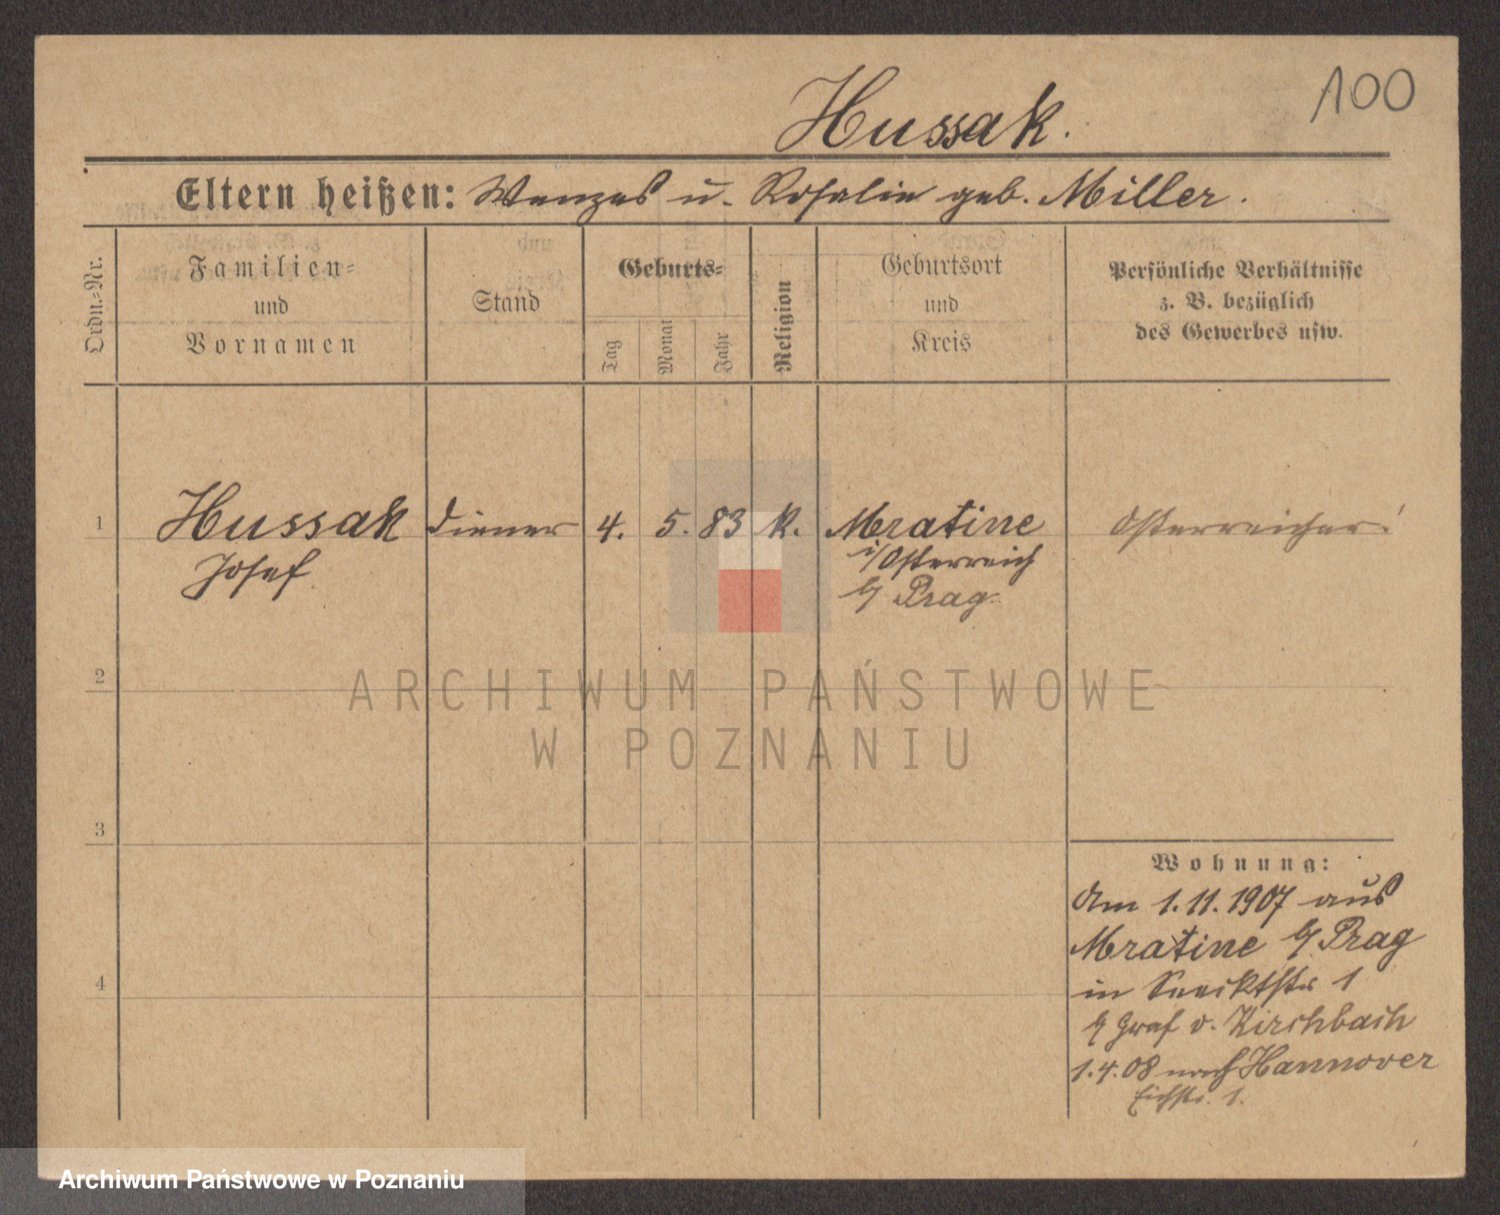 100
Hussak.
Eltern heißen: Wenzel u. Rosalie geb. Miller.
Ordn.-Nr.
Familien-
und
Vornamen
Stand
Geburts-
Tag
Monat
Jahr
Religion
Geburtsort
und
Kreis
Persönliche Verhältnisse
z. B. bezüglich
des Gewerbes usw.
1 Hussak Diener 4. 5. 83 k. Mratine Österreicher!
Josef i/Österreich
b/ Prag.
2
3
4
Wohnung:
Am 1.11.1907 aus
Mratine b/ Prag
in 1
b/ Graf v. Kirchbach
1.4.08 nach Hannover
Eichstr. 1.
ARCHIWUM PAŃSTWOWE
W POZNANIU
Archiwum Państwowe w Poznaniu